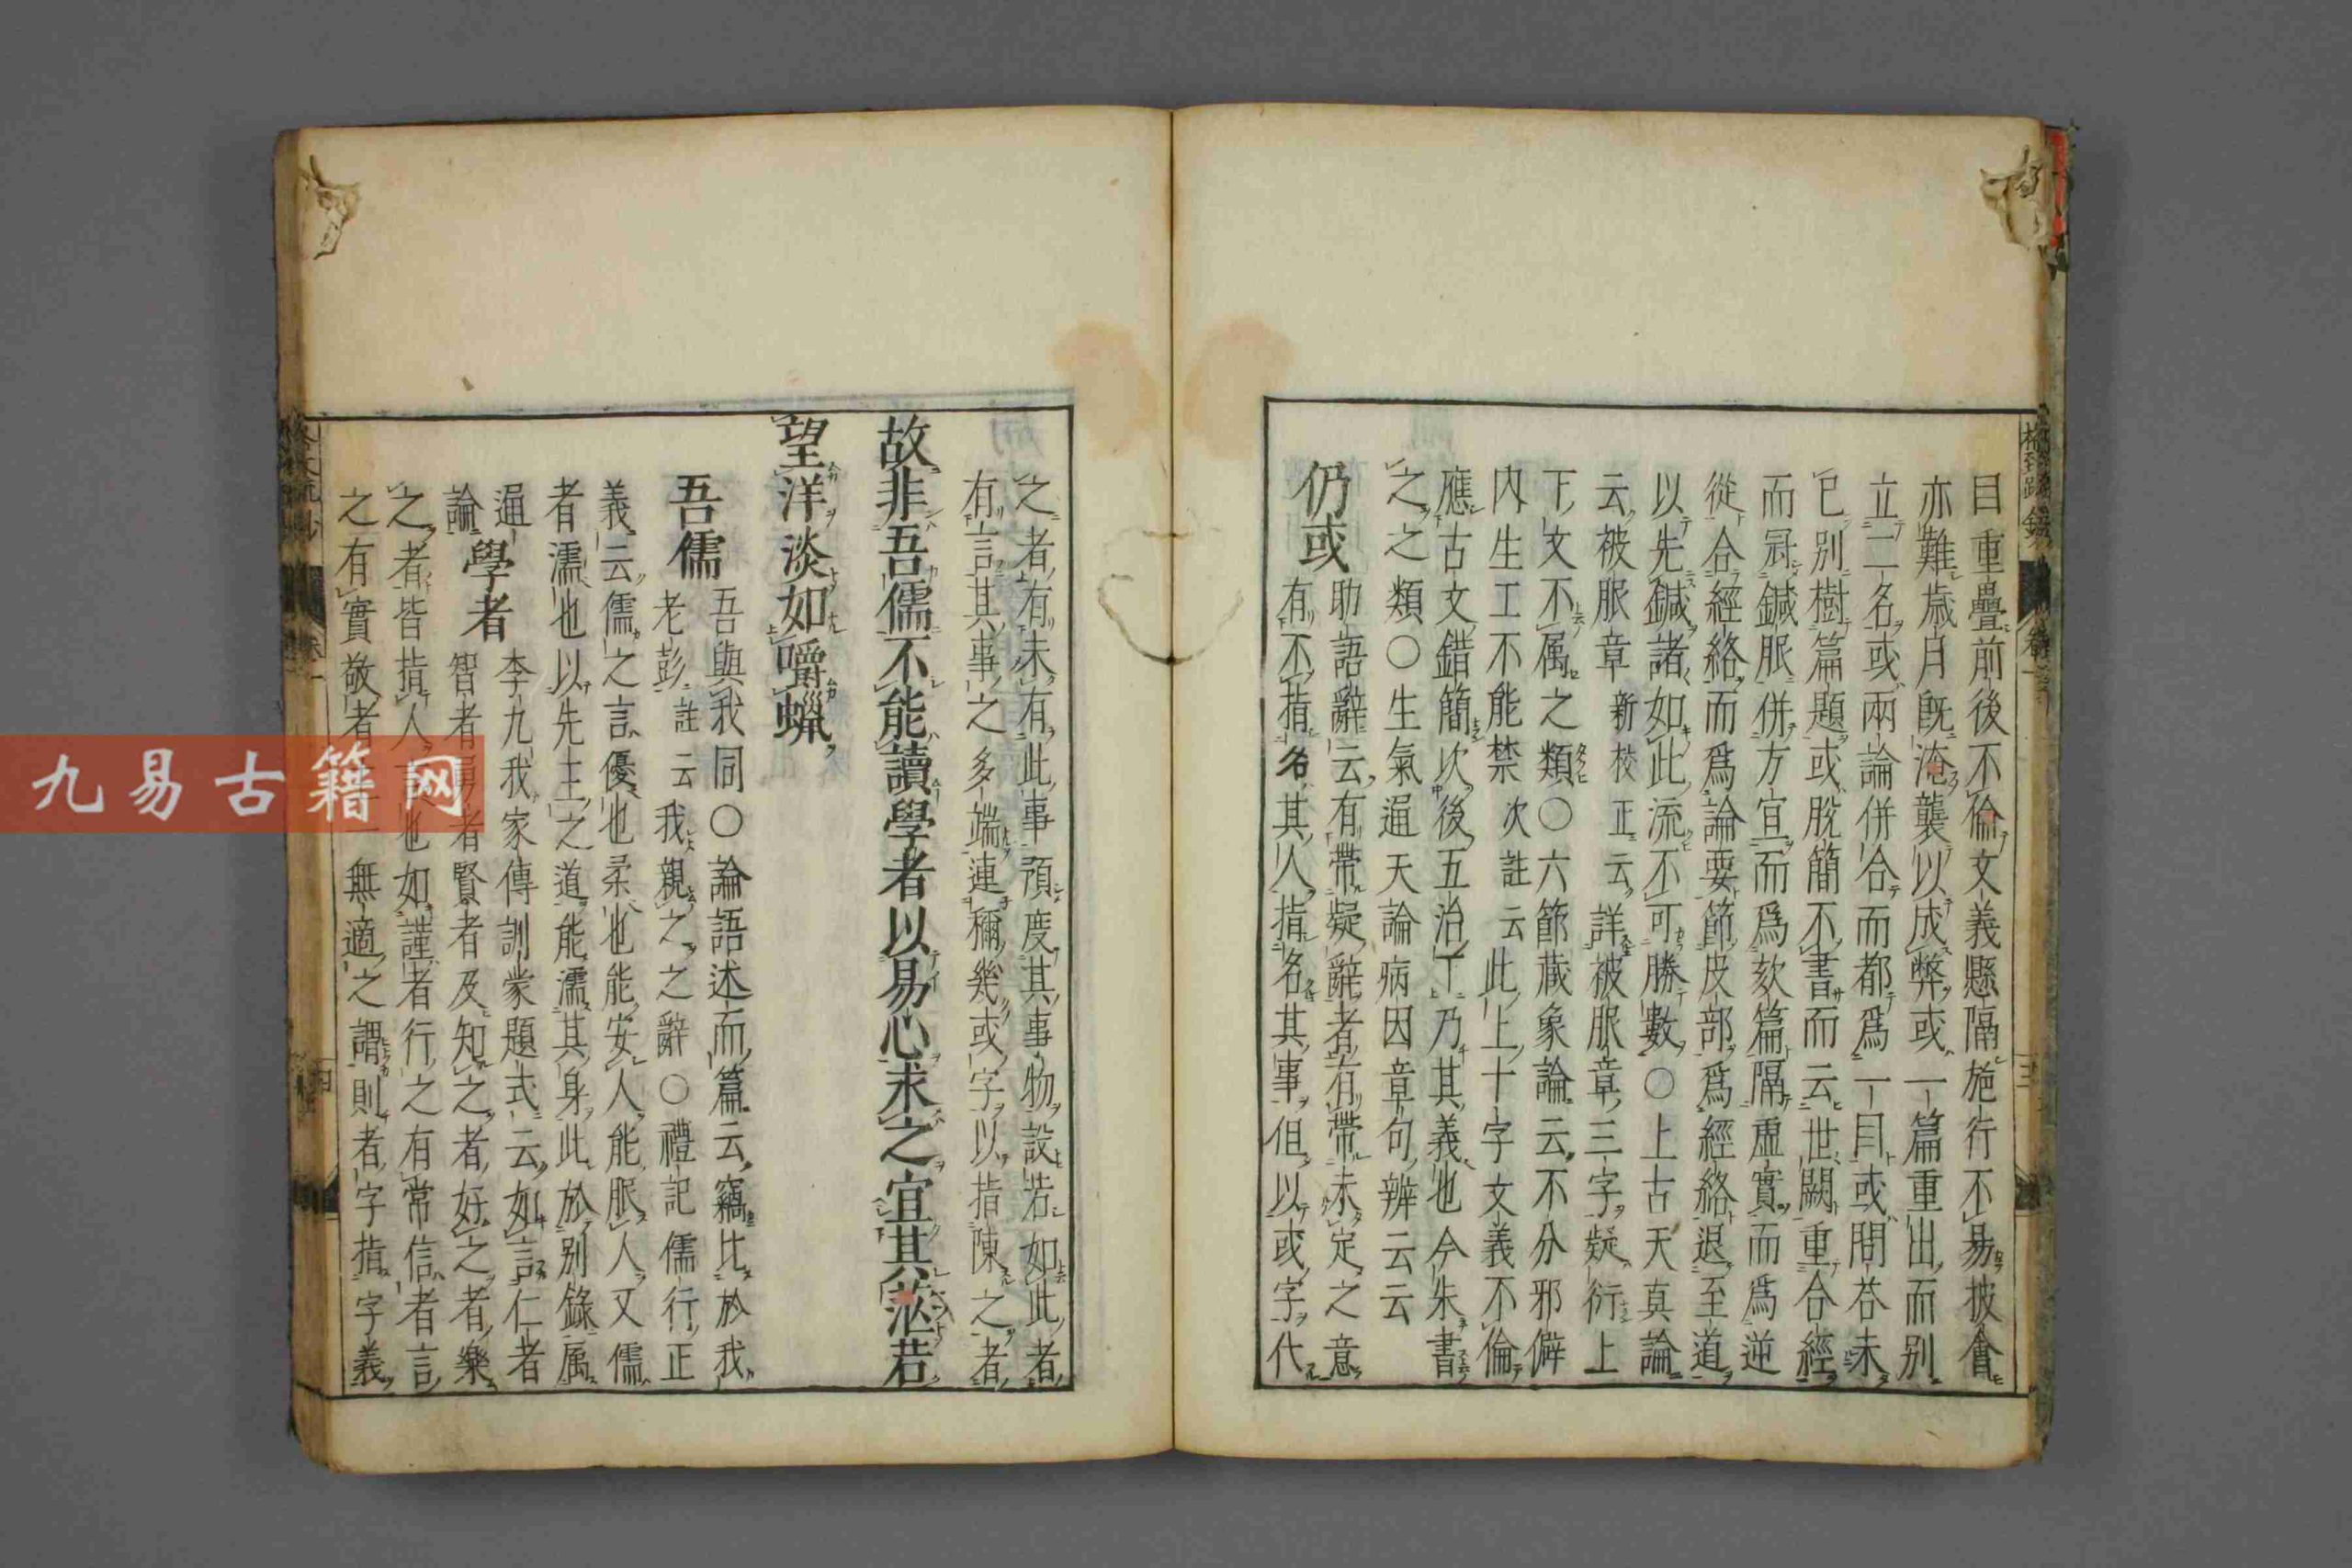 目重疊前後不倫文義懸隔施行不易披會
亦難歳月既淹襲以成弊或一篇重出而别
立二名或兩論併合而都爲一目或問荅未
已别樹篇題或脱簡不書而云世闕重合經
而冠鍼服併方宜而爲欬篇隔虚實而爲逆
從合經絡而爲論要節皮部爲經絡退至道
以先鍼諸如此流不可勝數○上古天真論
云被服章新校正云詳被服章三字疑衍上
下文不属之類○六節蔵象論云不分邪僻
内生工不能禁次註云此上十字文義不倫
應古文錯簡次後五治下乃其義也今朱書
之之類○生氣通天論病因章句辨云云
仍或
助語辭云有帶疑辭者有帶未定之意
有不指名其人指名其事但以或字代
之者有未有此事預度其事物設若如此者
有言其事之多端連稱幾或字以指陳之者
故非吾儒不能讀學者以易心求之宜其茫若
望洋淡如嚼蠟
吾儒
吾與我同○論語述而篇云竊比於我
老彭註云我親之之辭○禮記儒行正
義云儒之言優也柔也能安人能服人又儒
者濡也以先王之道能濡其身此於别錄属
通論
學者
李九我家傳訓蒙題式云如言仁者
智者勇者賢者及知之者好之者樂
之者皆指人言也如謹者行之有常信者言
之有實敬者一無適之謂則者字指字義
卷一
三
九易古籍网